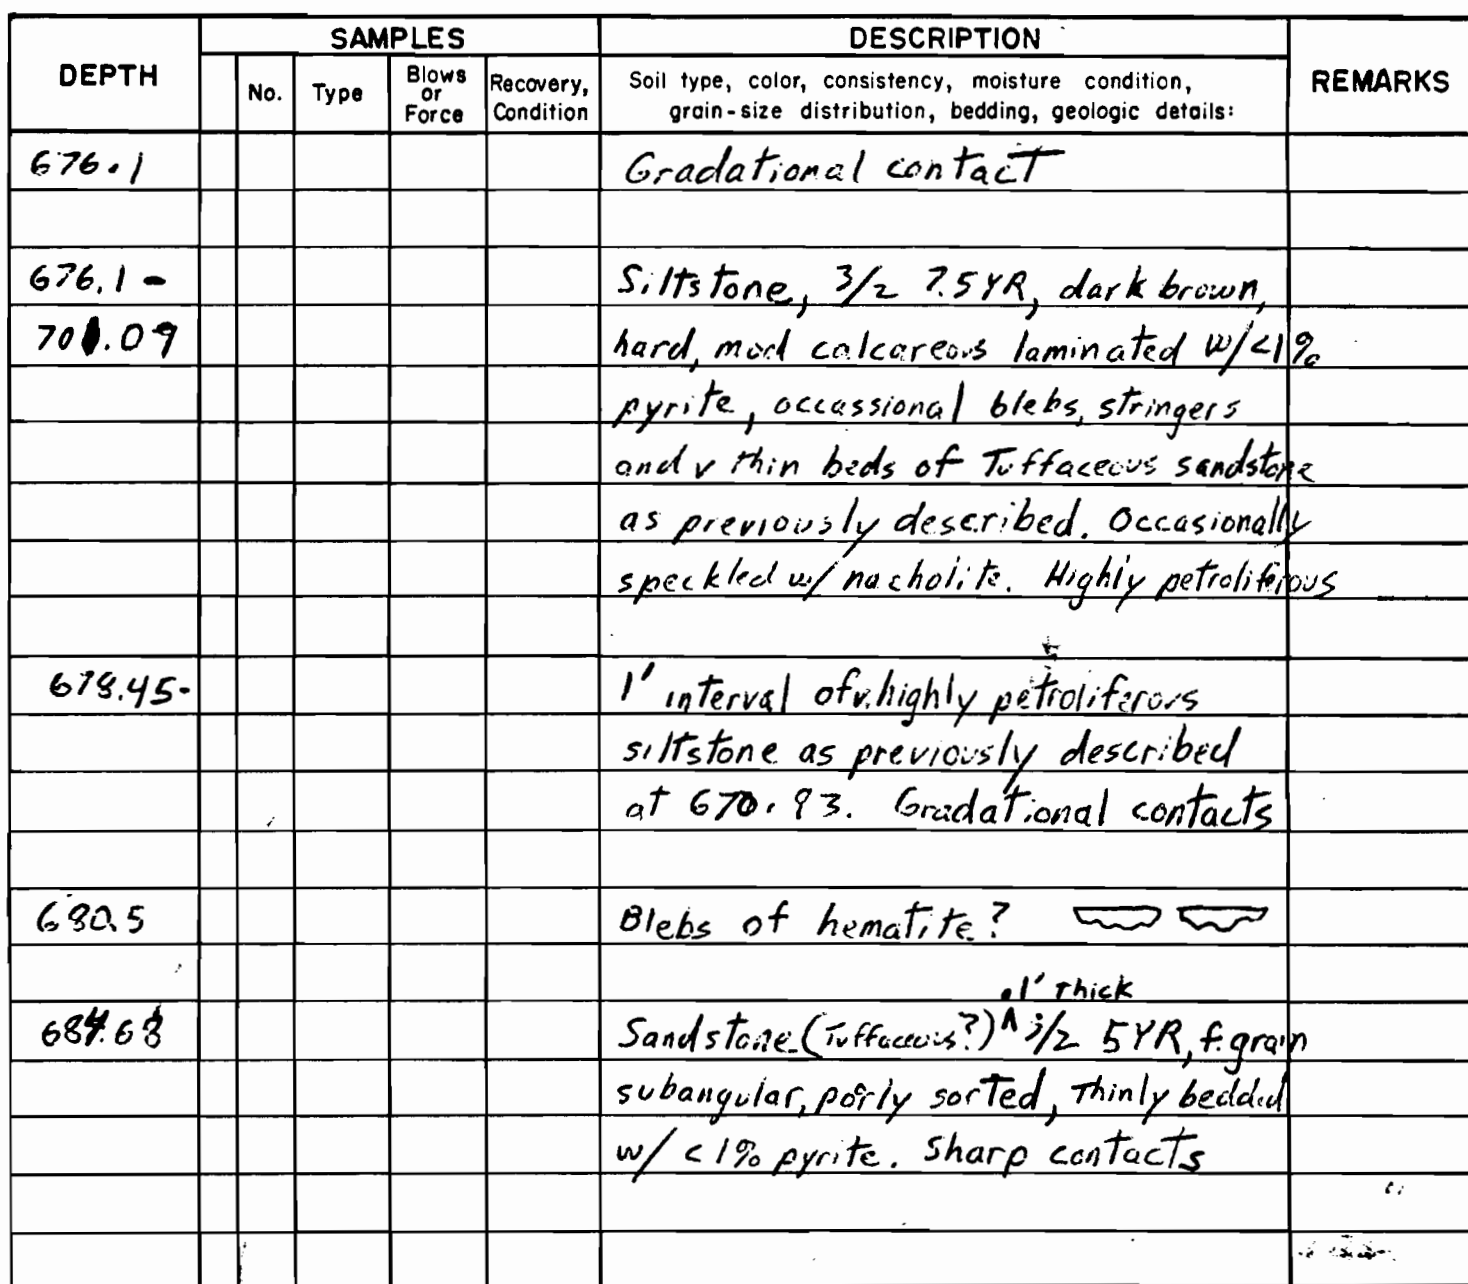 DEPTH SAMPLES DESCRIPTION REMARKS
No. Type Blows or Force Recovery, Condition Soil type, color, consistency, moisture condition, grain-size distribution, bedding, geologic details:
676.1 Gradational contact
676.1 - Siltstone, 3/2 7.5YR, dark brown,
701.09 hard, mod calcareous laminated w/<1%
pyrite, occassional blebs, stringers
and v thin beds of Tuffaceous sandstone
as previously described. Occasionally
speckled w/ nacholite. Highly petroliferous
678.45- 1' interval of v. highly petroliferous
siltstone as previously described
at 670.93. Gradational contacts
680.5 Blebs of hematite?
.1' thick
684.68 Sandstone (Tuffaceous?) ^ 3/2 5YR, f. grain
subangular, porly sorted, thinly bedded
w/ <1% pyrite. Sharp contacts